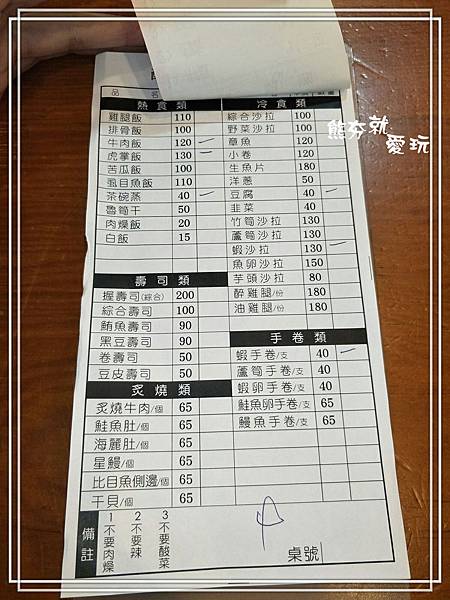 品名
熱食類
雞腿飯 110
排骨飯 100
牛肉飯 120
虎掌飯 130
苦瓜飯 100
虱目魚飯 110
茶碗蒸 40
魯筍干 50
肉燥飯 20
白飯 15
壽司類
握壽司(綜合) 200
綜合壽司 100
鮪魚壽司 90
黑豆壽司 90
卷壽司 50
豆皮壽司 50
炙燒類
炙燒牛肉/個 65
鮭魚肚/個 65
海麗肚/個 65
星鰻/個 65
比目魚側邊/個 65
干貝/個 65
冷食類
綜合沙拉 100
野菜沙拉 100
章魚 120
小卷 120
生魚片 180
洋蔥 50
豆腐 40
韭菜 40
竹筍沙拉 130
蘆筍沙拉 130
蝦沙拉 130
魚卵沙拉 150
芋頭沙拉 80
醉雞腿/份 180
油雞腿/份 180
手卷類
蝦手卷/支 40
蘆筍手卷/支 40
蝦卵手卷/支 40
鮭魚卵手卷/支 65
鰻魚手卷/支 65
備註
1不要肉燥
2不要辣
3不要酸菜
桌號
熊夯就
愛玩